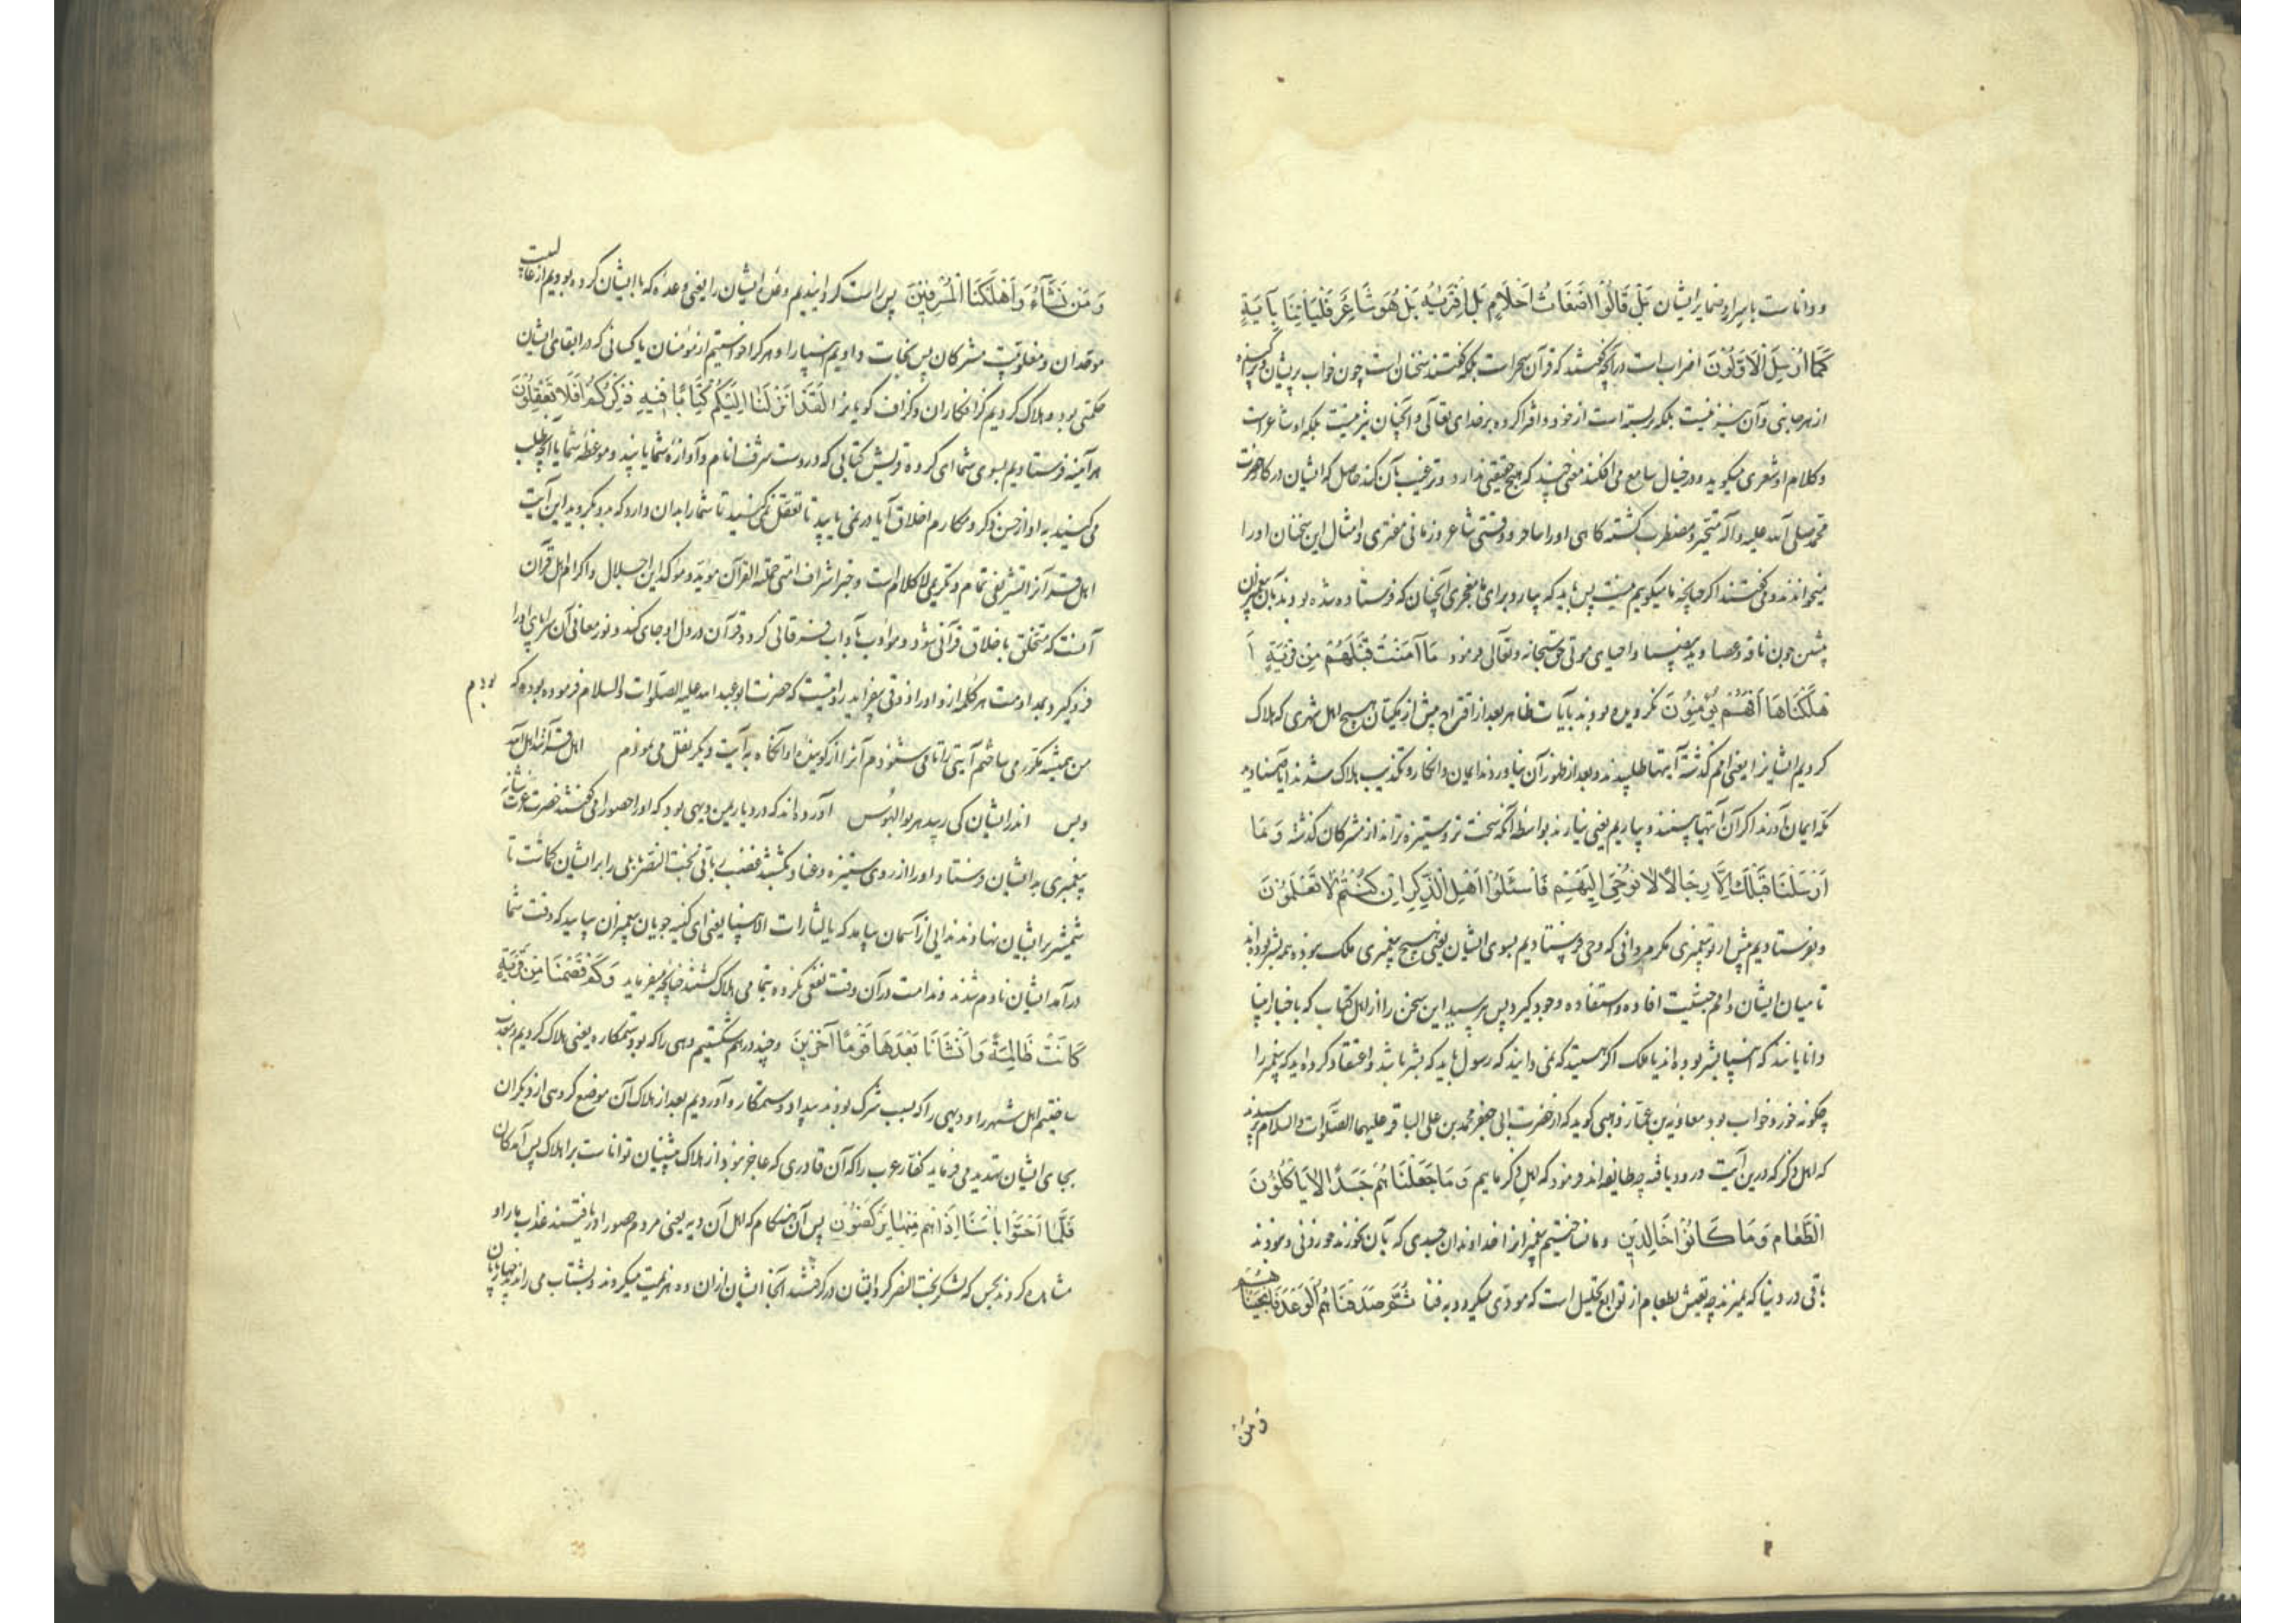 و دانا است باسرار و ضمایر ایشان بَلْ قَالُوا اَضْغَاثُ اَحْلَامٍ بَلِ افْتَرَیٰهُ بَلْ هُوَ شَاعِرٌ فَلْیَأْتِنَا بِآیَةٍ
کَمَا اُرْسِلَ الْاَوَّلُونَ اضراب است در آنچه گفتند که قرآن سحر است بلکه گفتند سخنان است چون خواب پریشان
از هر جانبی و آن نیز نیست بلکه بربسته است از خود و افترا کرده بر خدای تعالی و آنچنان نیز نیست بلکه او شاعر است
و کلام او شعری میگوید و در خیال سامع می افکند معنی چند که هیچ حقیقتی ندارد و ترغیب بآن کند حاصل که ایشان در کار حضرت
محمد صلی الله علیه و آله متحیر و مضطرب گشته گاهی او را ساحر و وقتی شاعر و زمانی مفتری و امثال این سخنان او را
میخواندند و می گفتند اگر چنانچه ما میگوییم نیست پس باید که بیارد برای ما معجزی آنچنان که فرستاده شده بودند بآن پیغمبران
پیشین چون ناقه و عصا و ید بیضا و احیای موتی حق سبحانه و تعالی فرمود مَا آمَنَتْ قَبْلَهُمْ مِنْ قَرْیَةٍ اَ
هْلَکْنَاهَا اَفَهُمْ یُؤْمِنُونَ نگرویده بودند بآیات ظاهر بعد از اقتراح پیش از مکیان هیچ اهل شهری که هلاک
کردیم ایشانرا یعنی امم گذشته آیتها طلبیدند و بعد از ظهور آن نیاوردند ایمان و انکار و تکذیب هلاک شدند آیا صنادید
مکه ایمان آورند اگر آن آیتها بینند و بیاریم یعنی نیارند بواسطه آنکه سخت تر و ستیزه تراند از مشرکان گذشته وَ مَا
اَرْسَلْنَا قَبْلَکَ اِلَّا رِجَالًا نُوحِی اِلَیْهِمْ فَاسْئَلُوا اَهْلَ الذِّکْرِ اِنْ کُنْتُمْ لَا تَعْلَمُونَ
و نفرستادیم پیش از تو پیغمبری مگر مردانی که وحی فرستادیم بسوی ایشان یعنی هیچ پیغمبری ملک نبوده همه بشر بوده اند
تا میان ایشان و امم جنسیت افاده و استفاده وجود گیرد پس بپرسید این سخن را از اهل کتاب که باخبار انبیا
دانایانند که انبیا بشر بوده اند یا ملک اگر هستید که نمی دانید که رسول باید که بشر باشد و اعتقاد کرده اید که پیغمبر را
چگونه خور و خواب بود معاویة بن عمار ذهبی گوید که از حضرت ابی جعفر محمد بن علی الباقر علیهما الصلوات و السلام پرسیدند
که اهل ذکر که درین آیت ورود یافته چه طایفه اند فرمود که اهل ذکر ماییم وَ مَا جَعَلْنَاهُمْ جَسَدًا لَا یَأْکُلُونَ
الطَّعَامَ وَ مَا کَانُوا خَالِدِینَ و ما نساختیم پیغمبرانرا خداوندان جسدی که بآن نخورند خوردنی و نبودند
باقی در دنیا که نمیرند چه تعیش بطعام از توابع تحلیل است که مودّی میگردد به فنا ثُمَّ صَدَقْنَاهُمُ الْوَعْدَ فَاَنْجَیْنَاهُمْ
وَ مَنْ
وَ مَنْ نَشَآءُ وَ اَهْلَکْنَا الْمُسْرِفِینَ پس راست گردانیدیم وعدهٔ ایشان را یعنی وعده که با ایشان کرده بودیم از غالبیت
موحدان و مغلوبیت مشرکان پس نجات دادیم انبیا را و هر که را خواستیم از مؤمنان یا کسانی که در ابقای ایشان
حکمتی بود و هلاک کردیم گزافکاران و گزاف گویانرا لَقَدْ اَنْزَلْنَا اِلَیْکُمْ کِتَابًا فِیهِ ذِکْرُکُمْ اَفَلَا تَعْقِلُونَ
هر آینه فرستادیم بسوی شما ای گروه قریش کتابی که دروست شرف انام و آوازه شما یا پند و موعظه شما یا آنچه طلب
می کنید به او از حسن ذکر و مکارم اخلاق آیا در نمی یابید تا تعقل نمی کنید تا شما را بدان دارد که بدو بگروید این آیت
اهل قرآنرا تشریفی تمام و تکریمی لا کلام است و خبر اشراف امتی حملة القرآن مؤید و مؤکد این اجلال و اکرام اهل قرآن
آنست که متخلق باخلاق قرآنی شود و مؤدب بآداب فرقانی گردد قرآن در دل او جای کند و نور معانی آن سراپای او را
فرو گیرد و بمداومت هر کلمه ازو او را ذوقی بیفزاید روایتست که حضرت ابو عبد الله علیه الصلوات و السلام فرموده بوده که
بودم
من همیشه مکرر می ساختم آیتی را تا می شنودم آنرا از گوینده او آنگاه به آیت دیگر نقل می نمودم اهل قرآنند اهل الله
و بس اندر ایشان کی رسد هر بوالهوس آورده اند که در دیار یمن دیهی بود که او را حصورا می گفتند حضرت عزت شانه
پیغمبری به ایشان فرستاد او را از روی ستیزه و عناد بکشتند غضب ربانی بخت النصر بابلی را بر ایشان گماشت تا
شمشیر بر ایشان نهادند ندایی از آسمان بیامد که یا لثارات الانبیا یعنی ای کینه جویان پیغمبران بیایید که وقت شما
درآمد ایشان نادم شدند و ندامت در آن وقت نفعی نکرده بتمامی هلاک گشتند چنانچه میفرماید وَ کَمْ قَصَمْنَا مِنْ قَرْیَةٍ
کَانَتْ ظَالِمَةً وَ اَنْشَانَا بَعْدَهَا قَوْمًا آخَرِینَ و چند درهم شکستیم دهی را که بود ستمکاره یعنی هلاک کردیم و معذب
ساختیم اهل شهر را و دیهی را که بسبب شرک بودند بیداد و ستمکار و آوردیم بعد از هلاک آن موضع گروهی از دیگران
بجای ایشان تهدید می فرماید کفار عرب را که آن قادری که عاجز نبود از هلاک پیشینیان توانا است بر اهلاک پس آمدگان
فَلَمَّا اَحَسُّوا بَأْسَنَا اِذَا هُمْ مِنْهَا یَرْکُضُونَ پس آن هنگام که اهل آن دیه یعنی مردم حصورا دریافتند عذاب ما را و
مشاهده کردند بحس که لشکر بخت النصر گرد ایشان درگرفتند آنجا ایشان ازان ده هزیمت میکردند و بشتاب می راندند چهارپایان